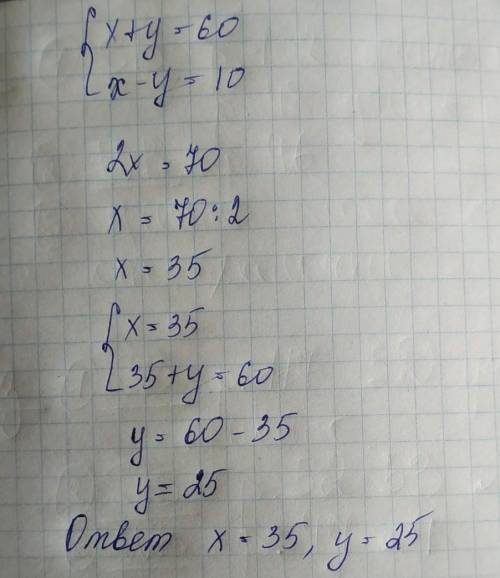 { x+y=60
x-y=10
2x=70
x=70:2
x=35
{ x=35
35+y=60
y=60-35
y=25
Ответ x=35, y=25